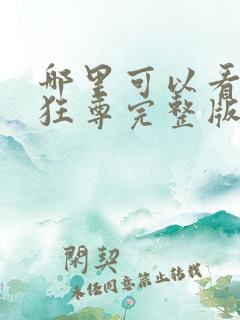 哪里可以看
狂尊完整版
閑契
未经同意禁止转载